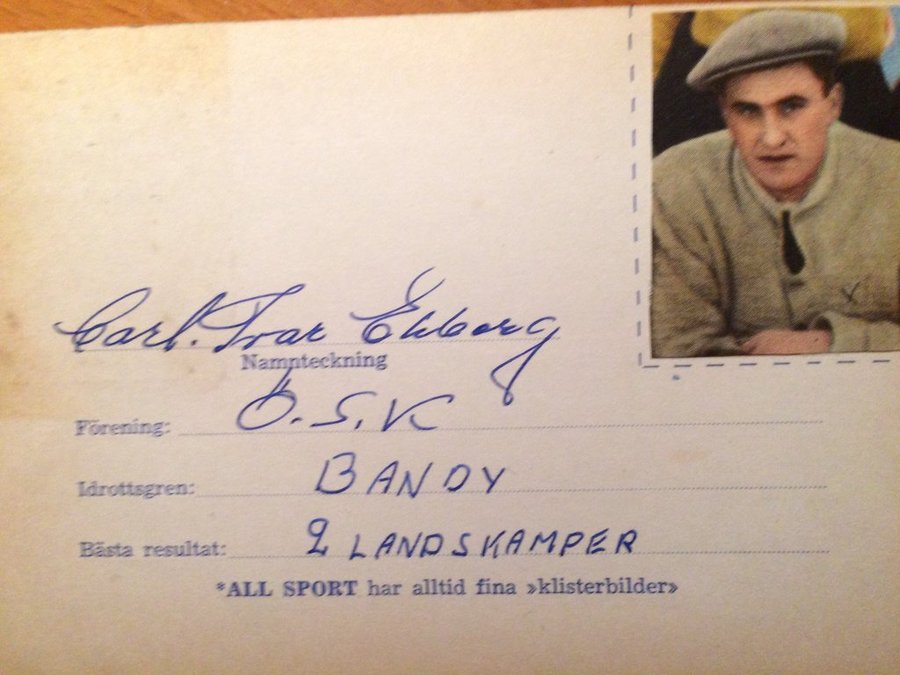 Carl. Ivar Ekberg
Namnteckning
Förening: Ö.S.K
Idrottsgren: BANDY
Bästa resultat: 2 LANDSKAMPER
*ALL SPORT har alltid fina »klisterbilder»